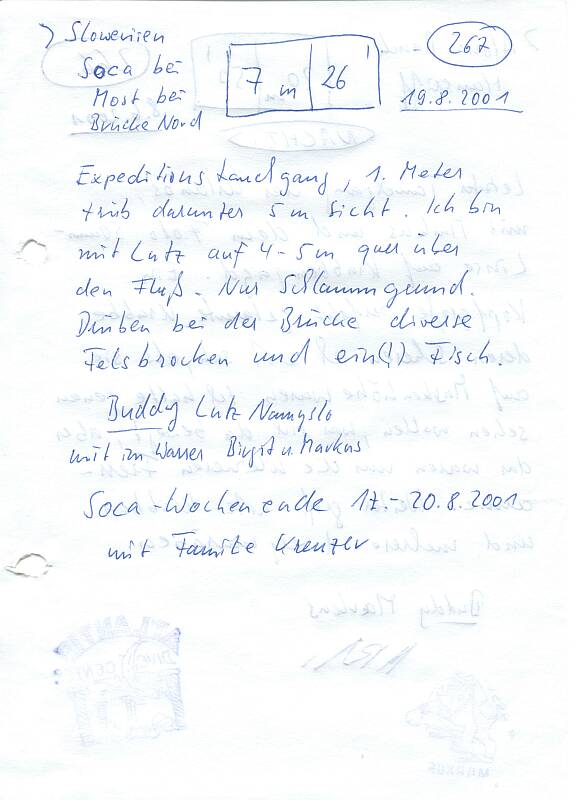 Slowenien
Soca bei
Most bei
Brücke Nord
7 m 26'
267
19.8.2001
Expeditionstauchgang, 1. Meter
trüb darunter 5 m Sicht. Ich bin
mit Lutz auf 4-5m quer über
den Fluß. Nur Schlammgrund.
Drüben bei der Brücke diverse
Felsbrocken und ein(!) Fisch.
Buddy Lutz Namyslo
mit im Wasser Birgit u. Markus
Soca-Wochenende 17.-20.8.2001
mit Familie Krenzer